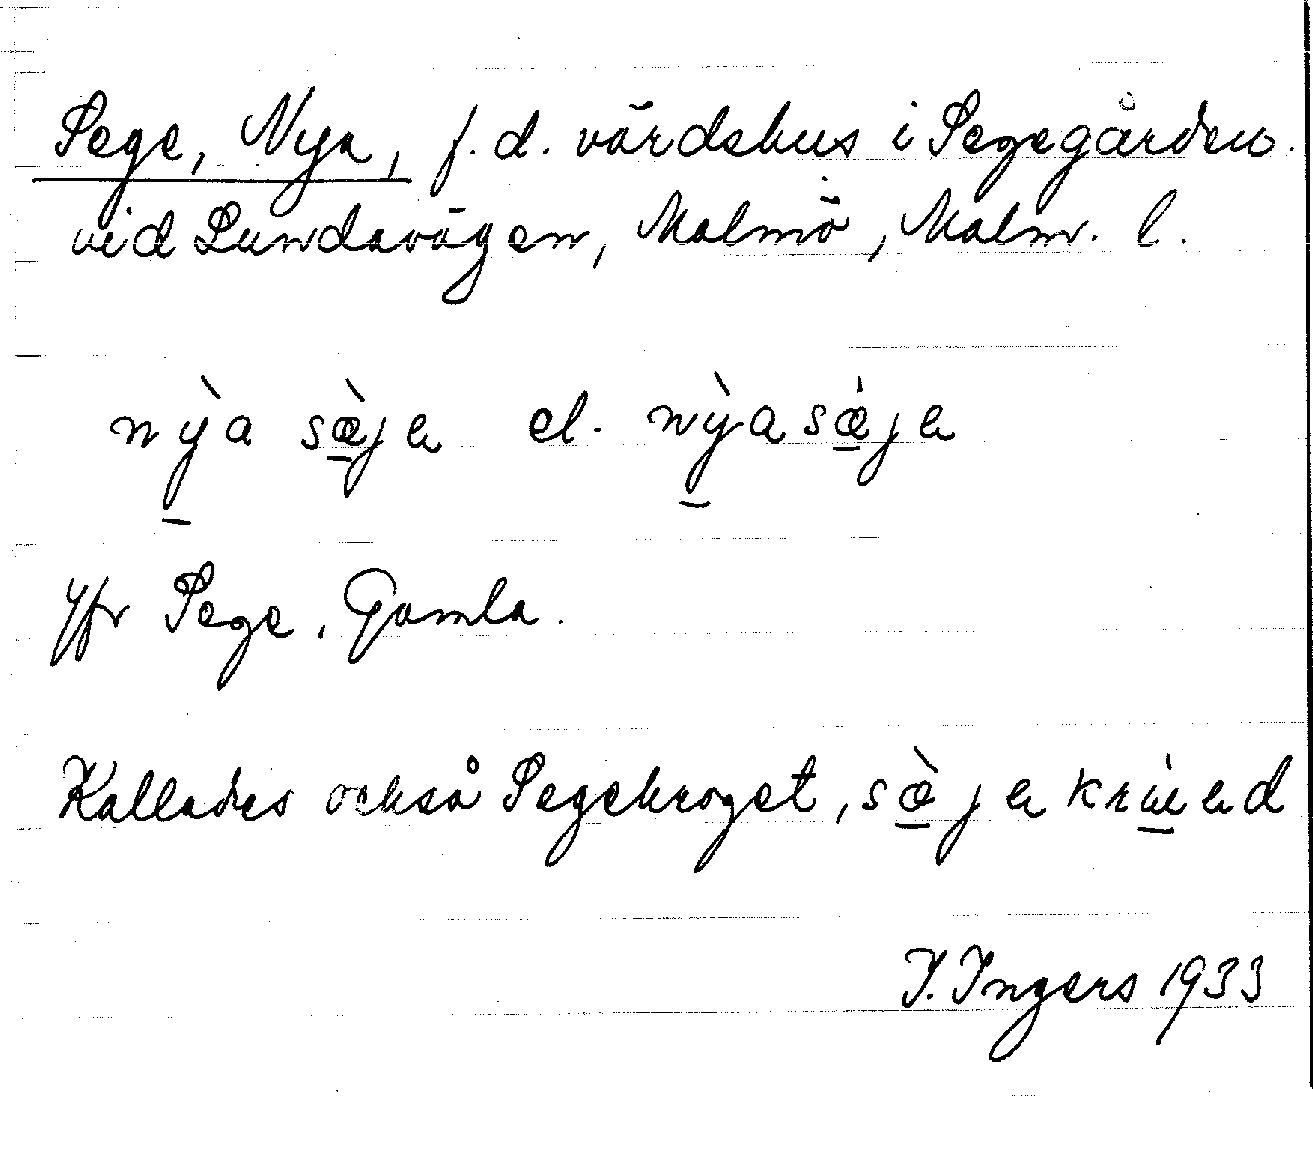 Sege, Nya, f.d. värdshus i Segegården.
vid Lundavägen, Malmö, Malm. l.
nỳa sæ̀jɐ el. nỳasǽjɐ
Jfr Sege, Gamla.
Kallades också Segekroget, sæ̀jɐkrúɐd
I. Ingers 1933